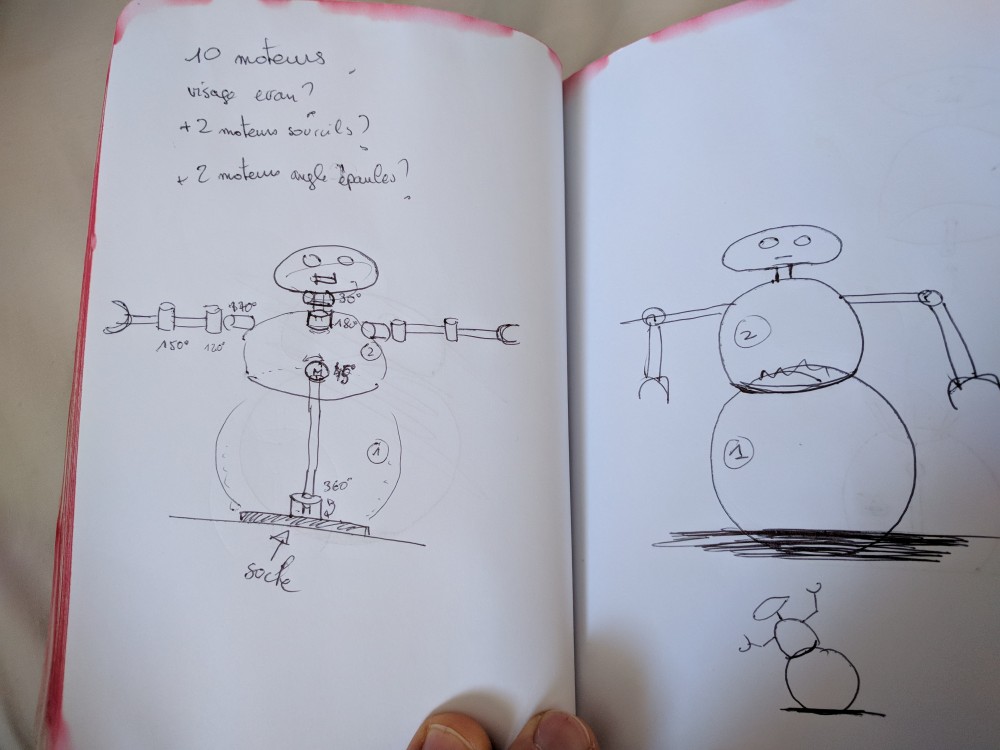 10 moteurs
visage ecran?
+ 2 moteurs sourcils?
+ 2 moteurs angle épaules?
35°
170°
180°
150°
120°
2
M
45°
1
360°
M
socle
2
1